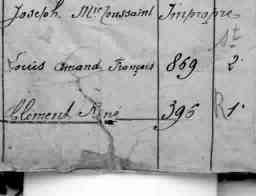 Joseph Mie Toussaint Impropre
St
Louis Amand François 869 2°
Clement René 396 R 1°